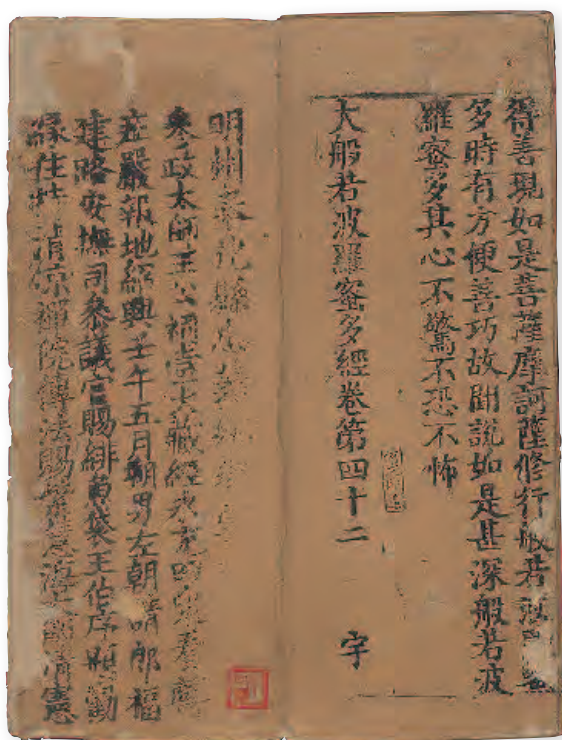 得善現如是菩薩摩訶薩修行般若波羅蜜
多時有方便善巧故聞說如是甚深般若波
羅蜜多其心不驚不恐不怖
大般若波羅蜜多經卷第四十二 宇
明州奉化縣忠義鄉
參政太師王公大藏經永充
莊嚴報地紹興壬午五月朝男左朝請郎福
建路安撫司參議官賜緋魚袋王伯序題勸
緣住持清涼禪院傳法賜紫慈海大師清憲